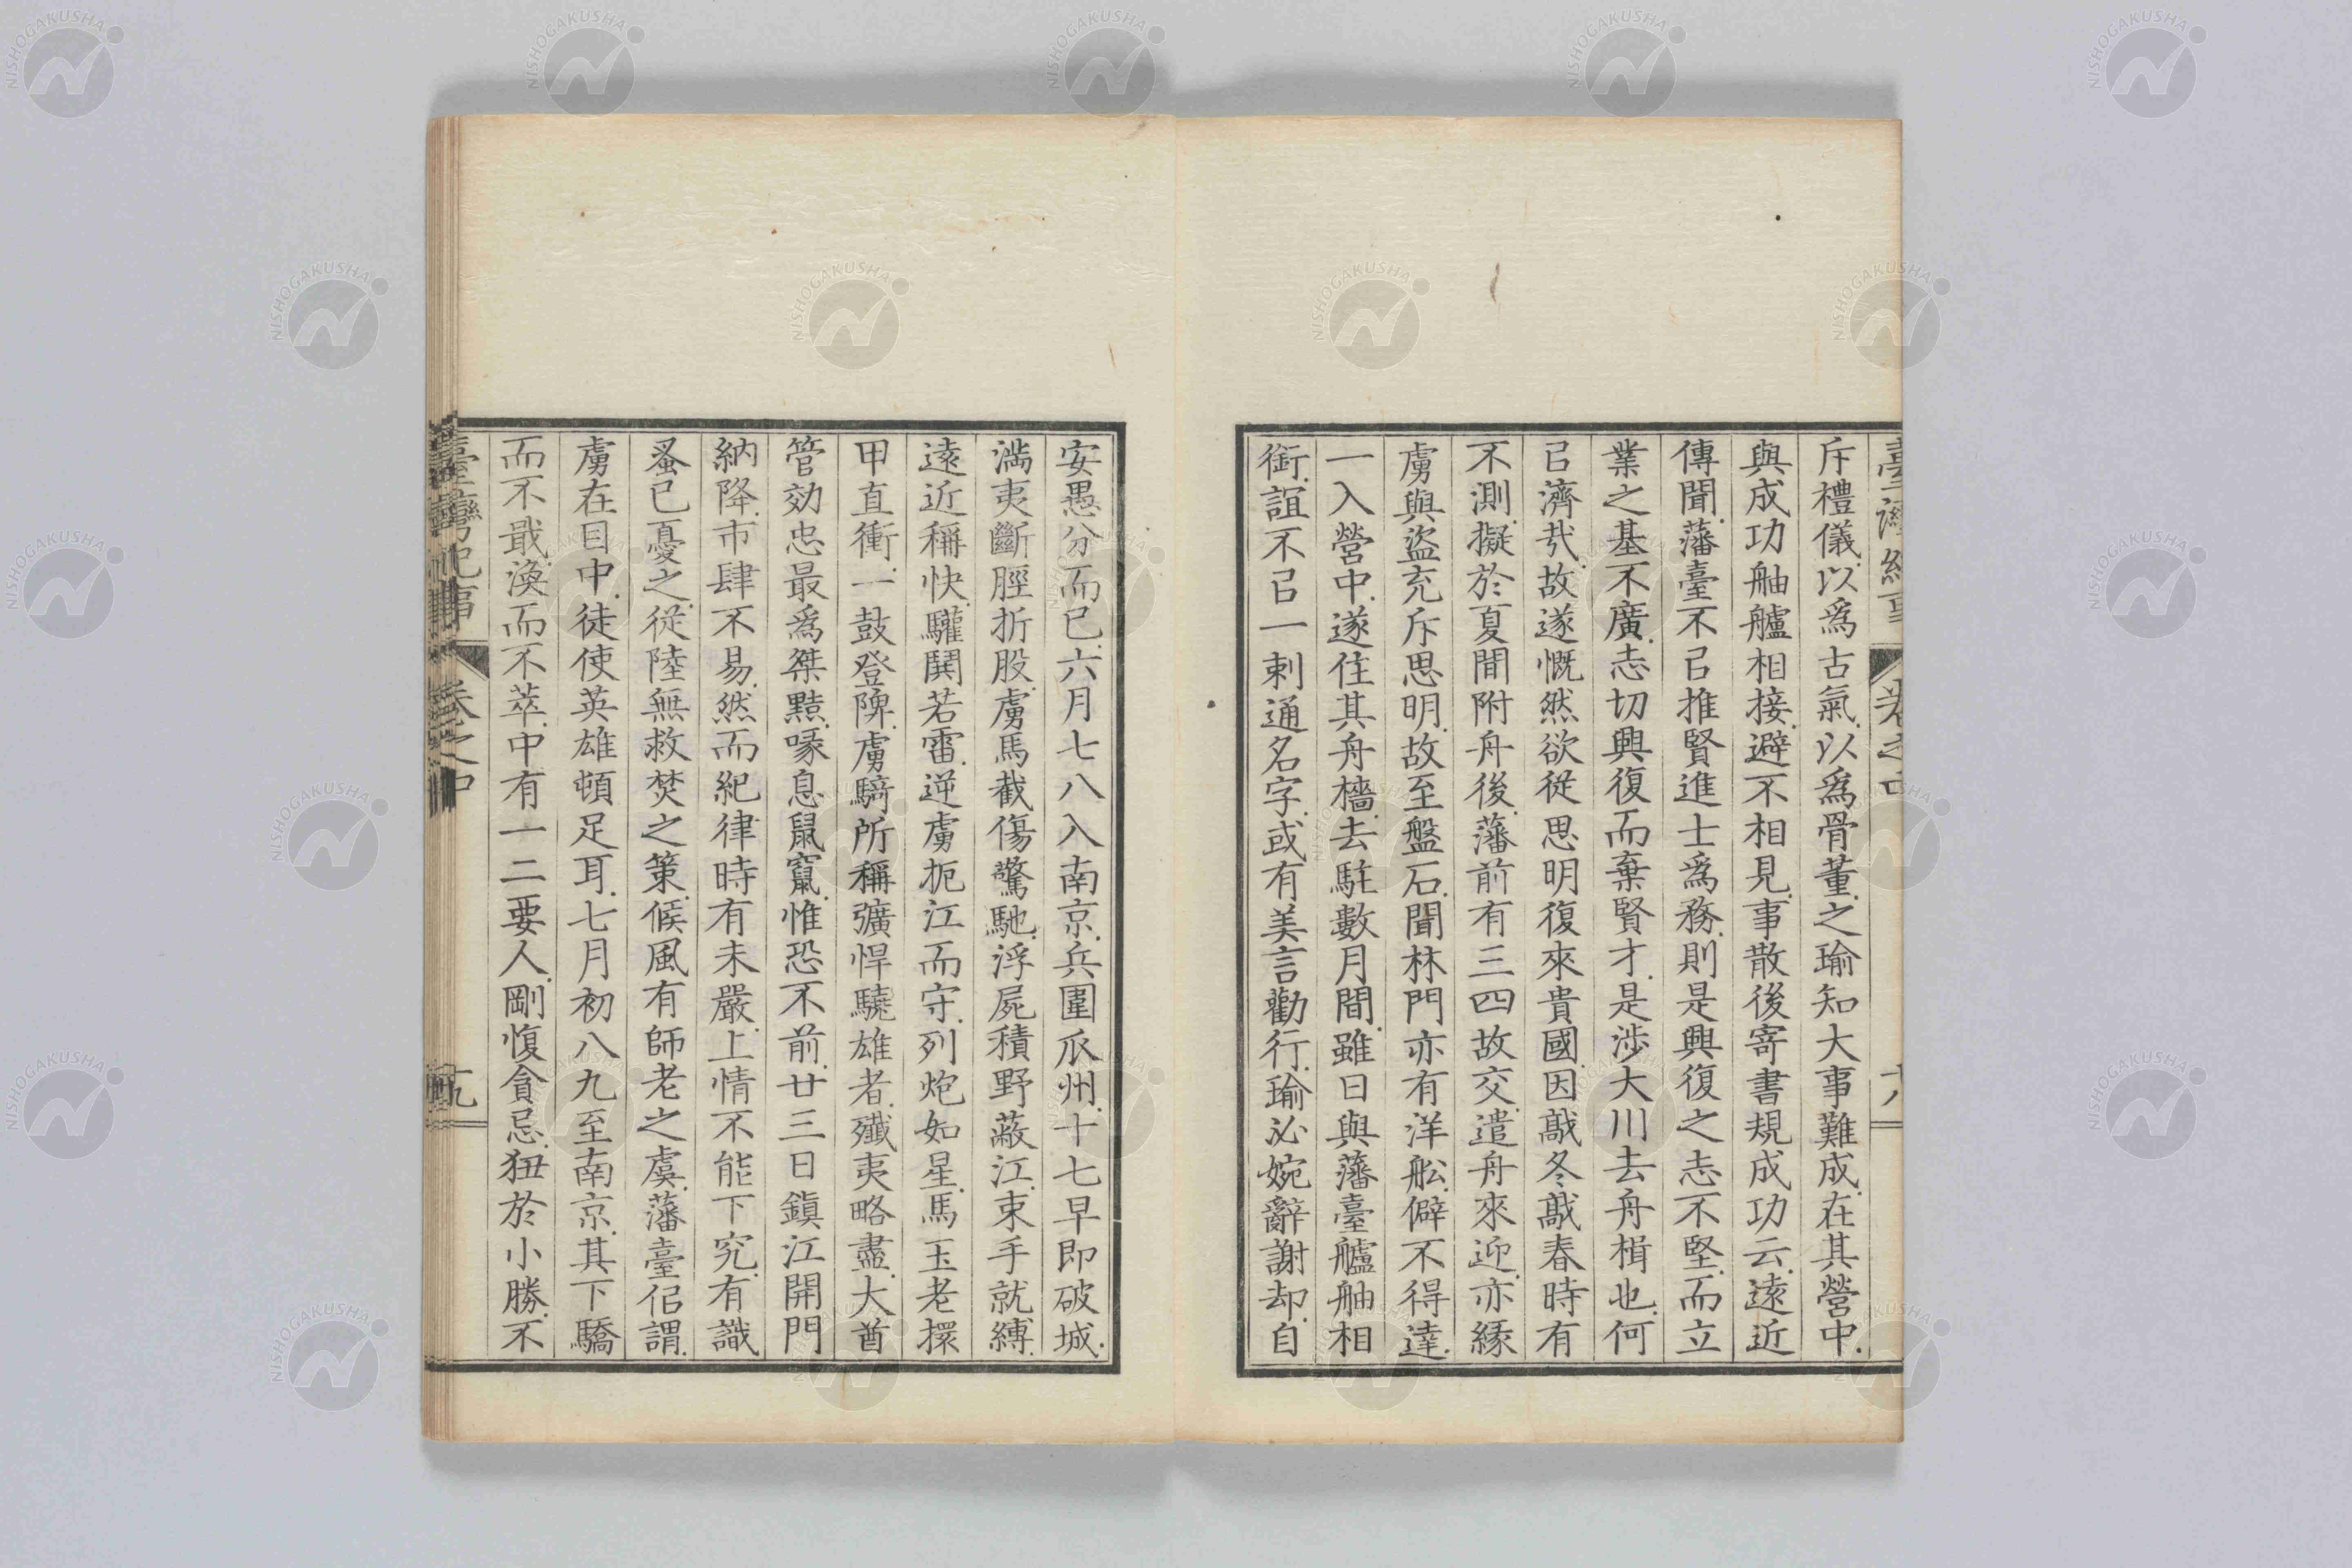 斥禮儀以爲古氣以爲骨董之瑜知大事難成在其營中
與成功舳艫相接避不相見事散後寄書規成功云遠近
傳聞藩臺不以推賢進士爲務則是興復之志不堅而立
業之基不廣志切興復而棄賢才是涉大川去舟楫也何
以濟㢤故遂慨然欲從思明復來貴國因敲冬敲春時有
不測擬於夏間附舟後藩前有三四故交遣舟來迎亦緣
虜與盜充斥思明故至盤石聞林門亦有洋舩僻不得達
一入營中遂住其舟檣去駐數月間雖日與藩臺艫舳相
銜誼不以一刺通名字或有美言勸行瑜必婉辭謝却自
安愚分而已六月七八入南京兵圍瓜州十七早即破城
滿夷斷脛折股虜馬截傷驚馳浮屍積野蔽江束手就縛
遠近稱快驩鬨若雷逆虜扼江而守列炮如星馬玉老擐
甲直衝一鼓登陴虜騎所稱獷悍驍雄者殲夷略盡大酋
管効忠最爲桀黠喙息鼠竄惟恐不前廿三日鎭江開門
納降市肆不易然而紀律時有未嚴上情不能下究有識
蚤已憂之從陸無救焚之策候風有師老之虞藩臺佋謂
虜在目中徒使英雄頓足耳七月初八九至南京其下驕
而不戢渙而不萃中有一二要人剛愎貪忌狃於小勝不
臺灣紀事
卷之中
九
NISHOGAKUSHA